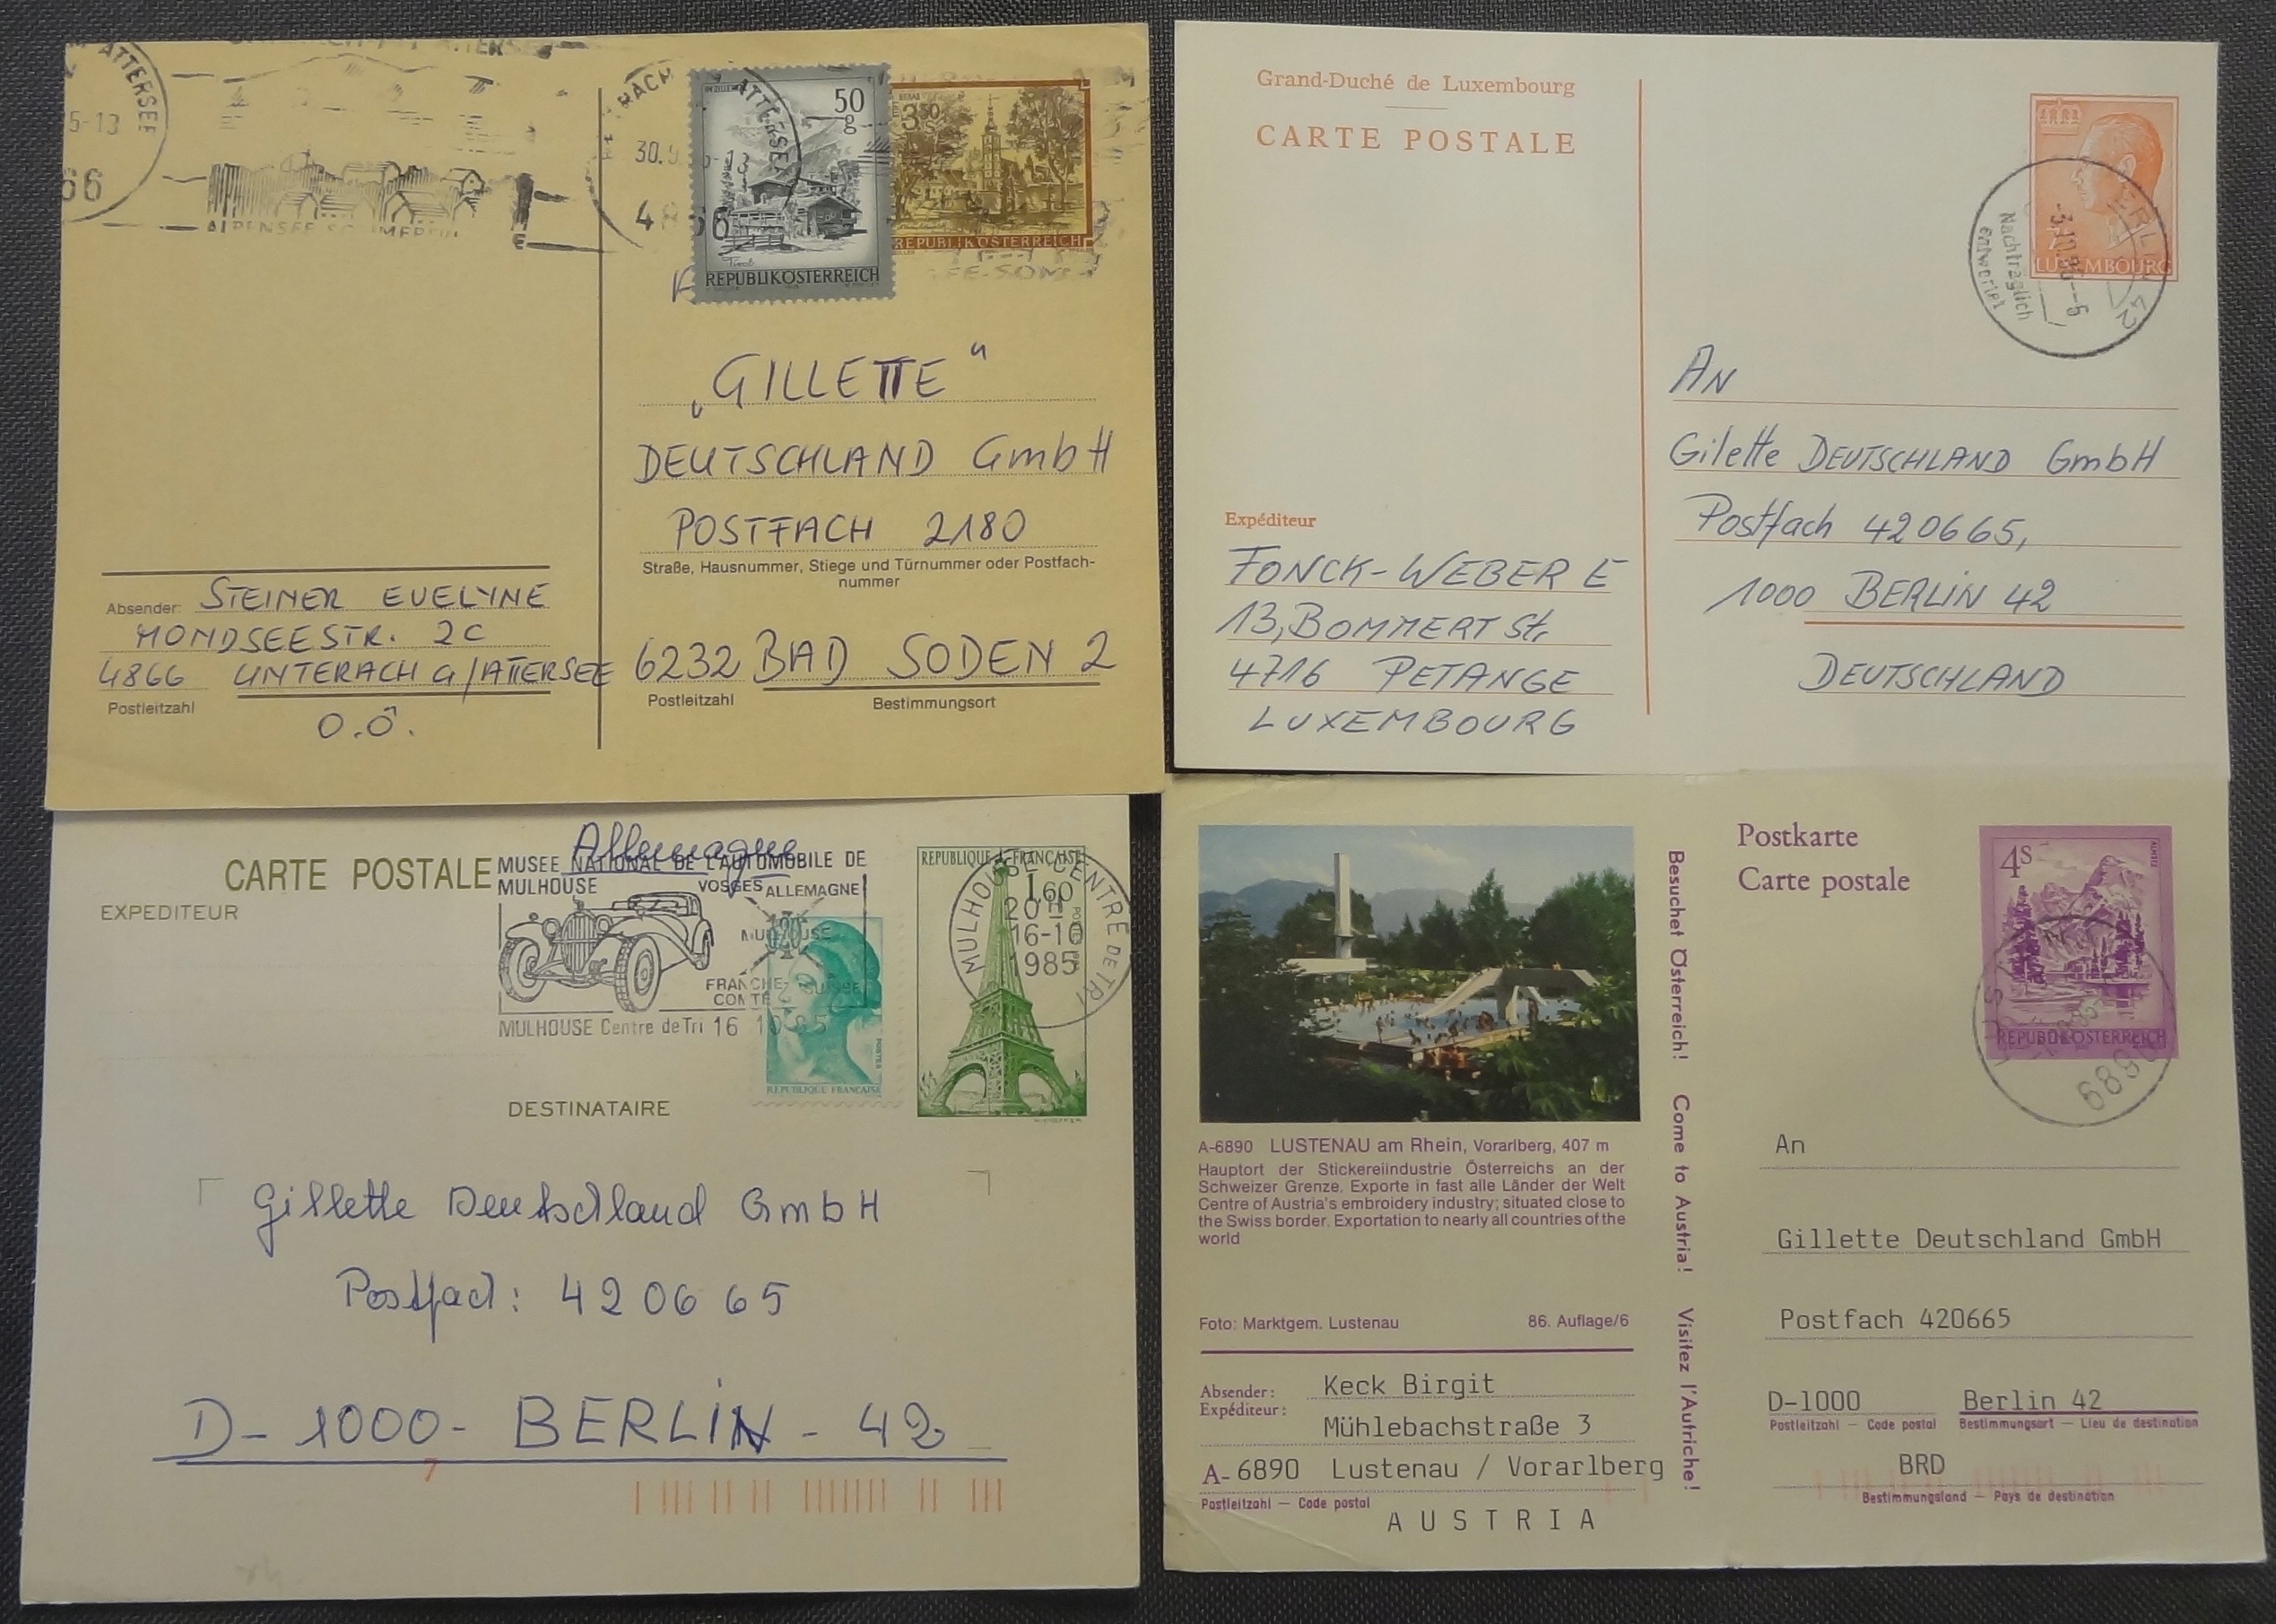 ATTERSEE
5-13
66
30.9.
50
g
3 50
S
Tirol
REPUBLIKÖSTERREICH
REPUBLIK ÖSTERREICH
„GILLETTE“
DEUTSCHLAND GmbH
POSTFACH 2180
Straße, Hausnummer, Stiege und Türnummer oder Postfach-
nummer
Absender: STEINER EVELYNE
MONDSEESTR. 2C
4866 UNTERACH a/ATTERSEE
Postleitzahl
O.Ö.
6232 BAD SODEN 2
Postleitzahl Bestimmungsort
Grand-Duché de Luxembourg
CARTE POSTALE
LUXEMBOURG
Nachträglich
entwertet
An
Gilette DEUTSCHLAND GmbH
Postfach 420665,
1000 BERLIN 42
DEUTSCHLAND
Expéditeur
FONCK-WEBER E
13, BOMMERT Str.
4716 PETANGE
LUXEMBOURG
Allemagne
CARTE POSTALE
EXPEDITEUR
MUSEE NATIONAL DE L'AUTOMOBILE DE
MULHOUSE
VOSGES ALLEMAGNE
MULHOUSE
FRANCHE- SUISSE
COMTE
MULHOUSE Centre de Tri 16 10 85
POSTES
REPUBLIQUE FRANCAISE
REPUBLIQUE FRANÇAISE
1,60
MULHOUSE CENTRE DE TRI
20H
16-10
1985
DESTINATAIRE
Gillette Deutschland GmbH
Postfach: 420665
D-1000-BERLIN-42
7
A-6890 LUSTENAU am Rhein, Vorarlberg, 407 m
Hauptort der Stickereiindustrie Österreichs an der
Schweizer Grenze. Exporte in fast alle Länder der Welt
Centre of Austria's embroidery industry; situated close to
the Swiss border. Exportation to nearly all countries of the
world
Foto: Marktgem. Lustenau 86. Auflage/6
Absender: Keck Birgit
Expéditeur:
Mühlebachstraße 3
A- 6890 Lustenau / Vorarlberg
Postleitzahl — Code postal
AUSTRIA
Besuchet Österreich! Come to Austria! Visitez l'Autriche!
Postkarte
Carte postale
4S
REPUBLIK ÖSTERREICH
6890
An
Gillette Deutschland GmbH
Postfach 420665
D-1000 Berlin 42
Postleitzahl — Code postal Bestimmungsort — Lieu de destination
BRD
Bestimmungsland — Pays de destination